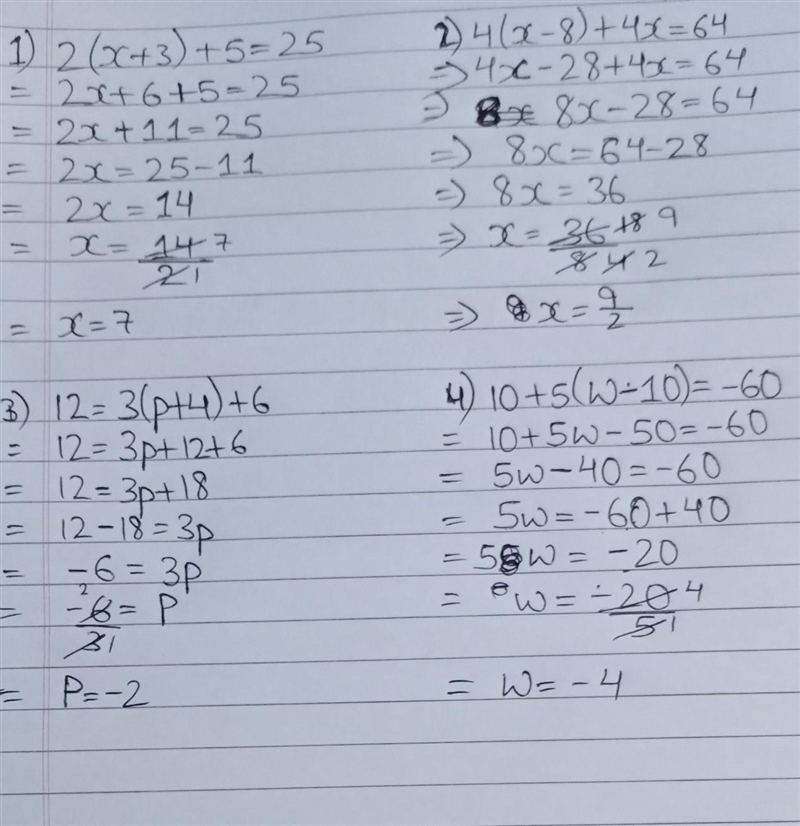 1) 2(x+3)+5=25
= 2x+6+5=25
= 2x+11=25
= 2x=25-11
= 2x=14
= x=14 7
2 1
= x=7
2) 4(x-8)+4x=64
=> 4x-28+4x=64
=> 8x-28=64
=> 8x=64-28
=> 8x=36
=> x=36 18 9
8 4 2
=> x=9/2
3) 12=3(p+4)+6
= 12=3p+12+6
= 12=3p+18
= 12-18=3p
= -6=3p
2
= -6=P
3 1
= P=-2
4) 10+5(w-10)=-60
= 10+5w-50=-60
= 5w-40=-60
= 5w=-60+40
= 5w=-20
= w=-20 4
5 1
= w=-4